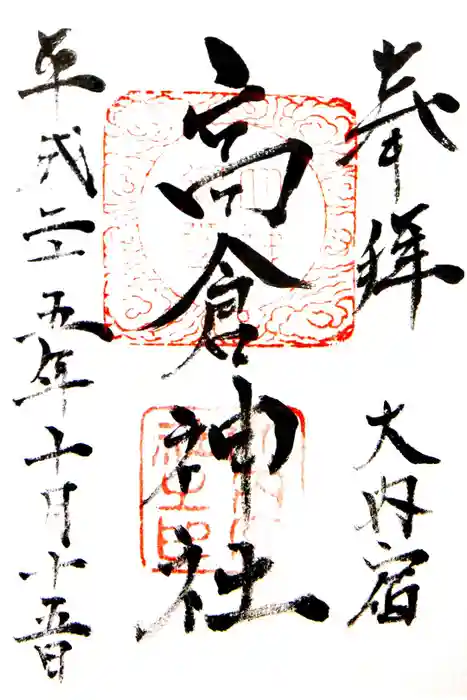 奉拝
大内宿
高倉神社
平成二十五年十月十五日